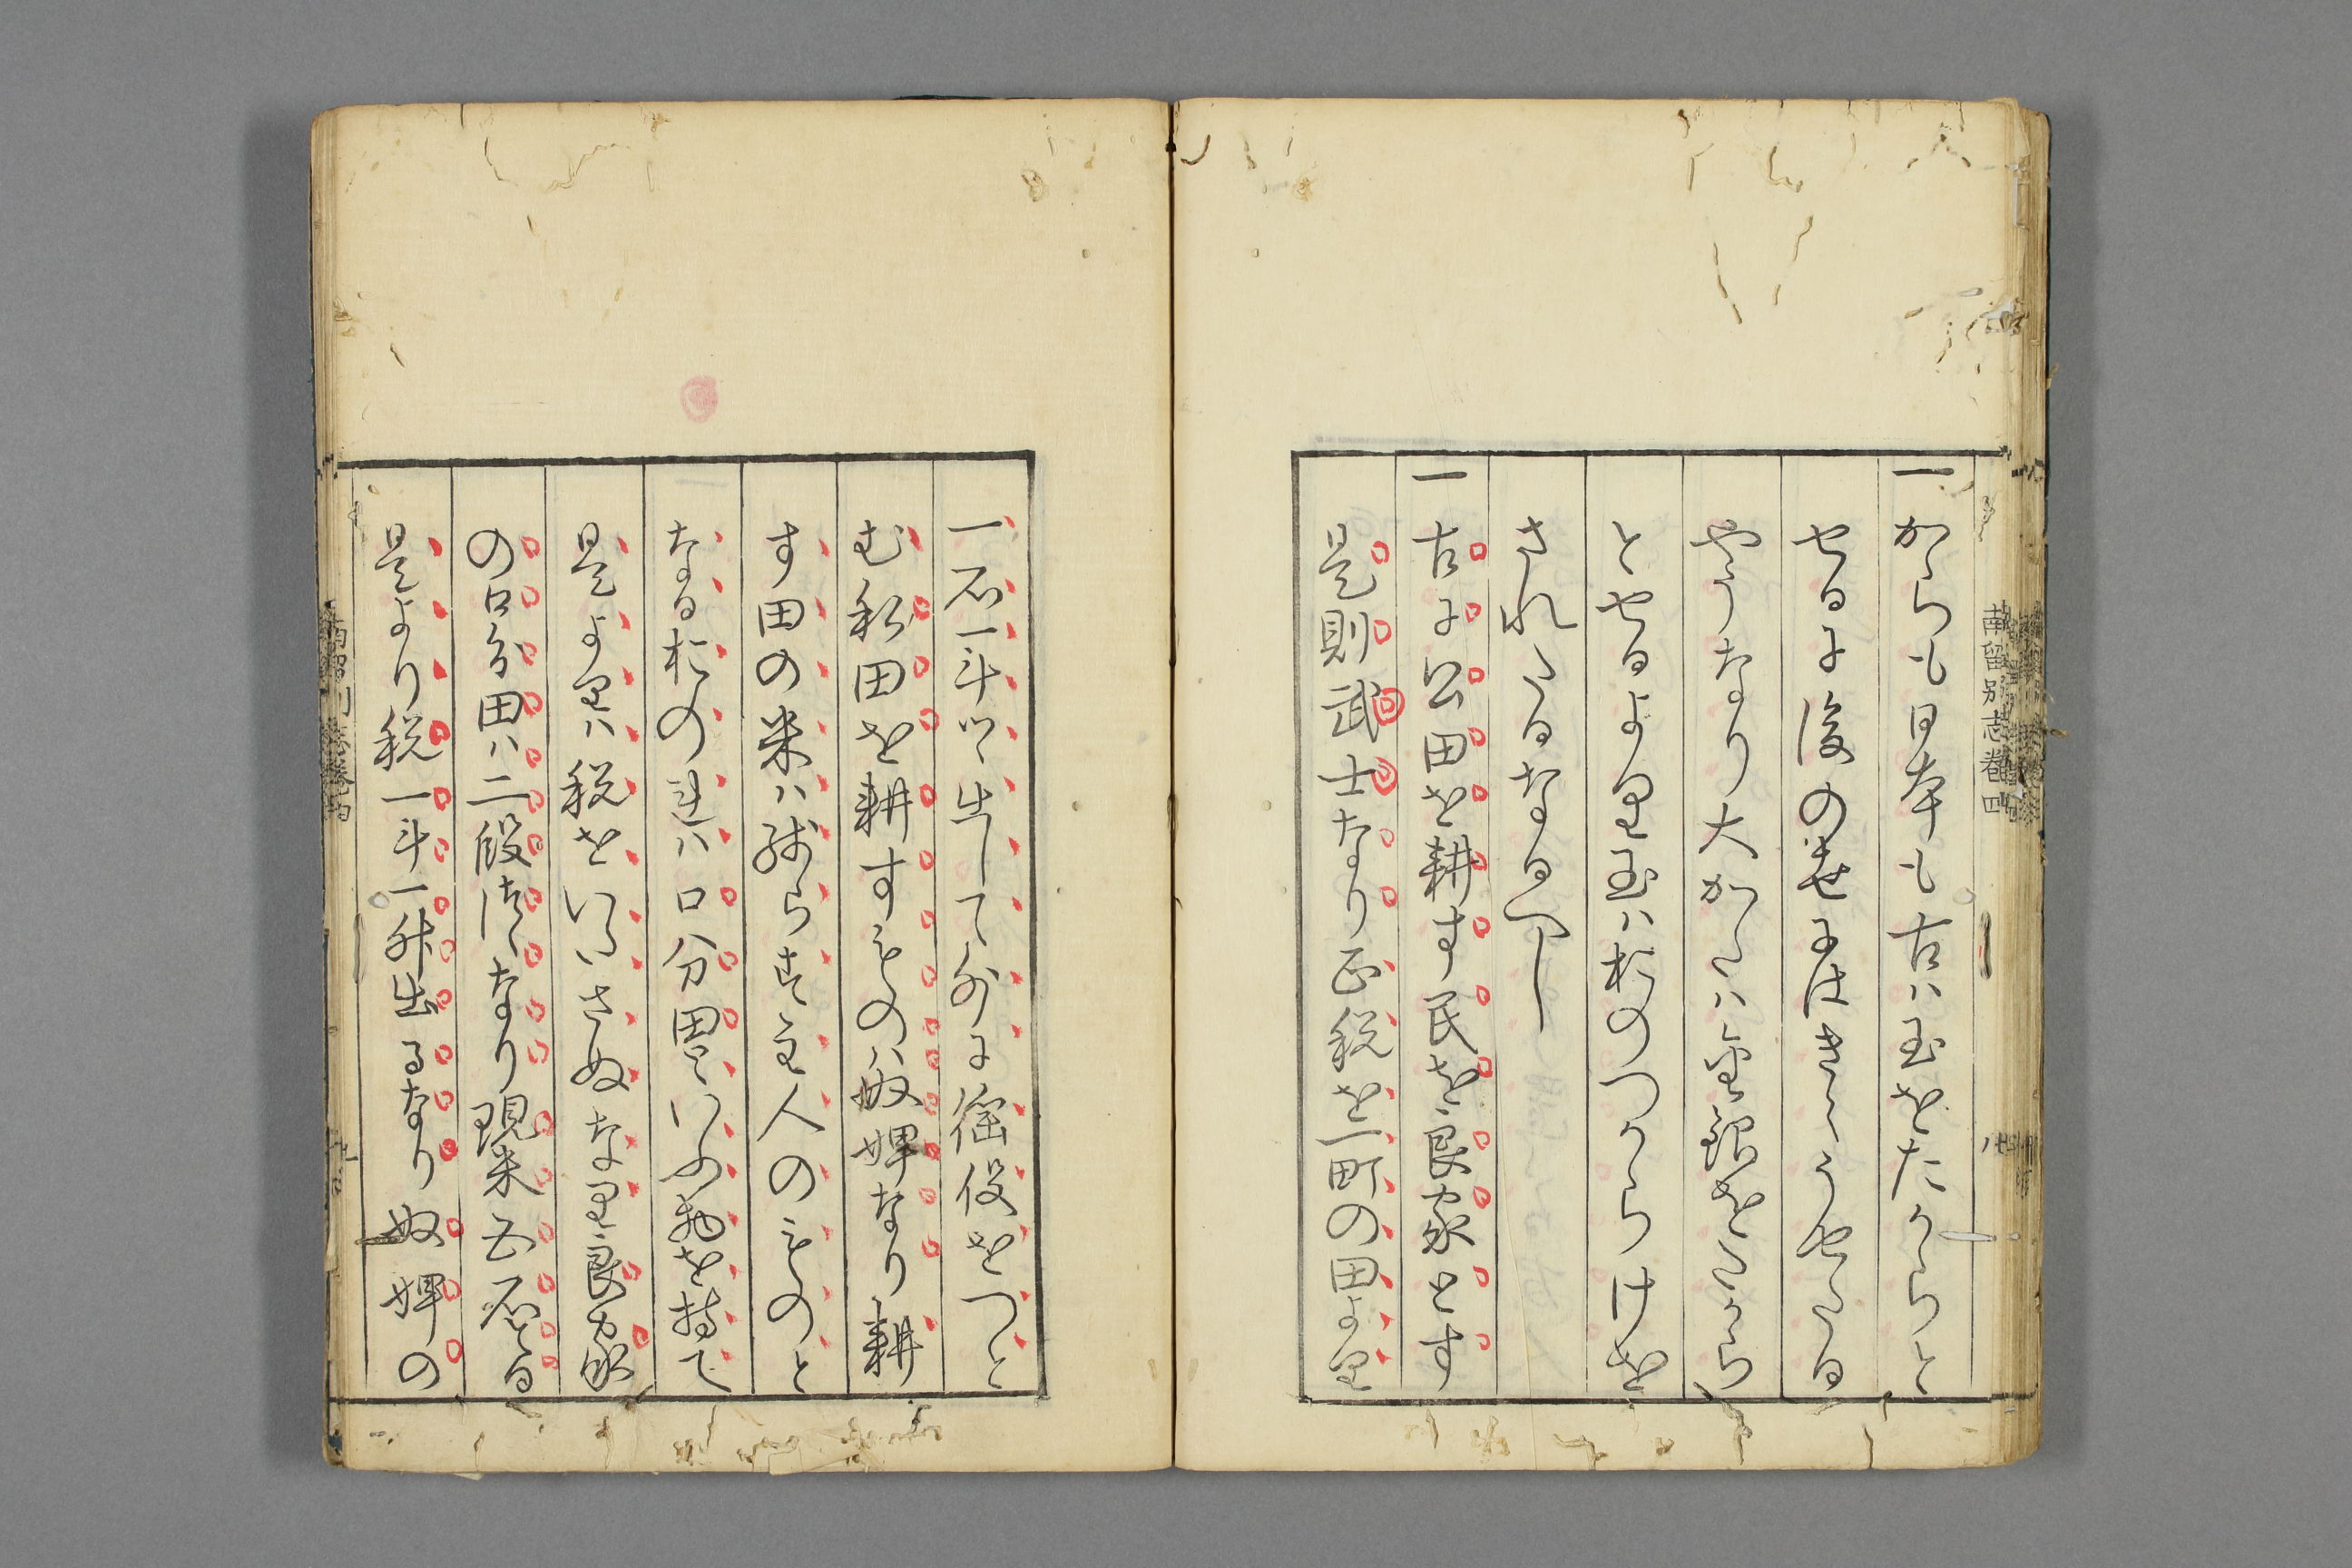 一からも日本も古ハ玉をたからと
せるに後の世にはきえうせたる
やうなり大かたハ金銀をたから
とせるより玉ハおのつからけを
されたるなるへし
一古に公田を耕す民を良家とす
是則武士なり正税を一町の田より
南留別志巻四
一石一斗ツヽ出して外に徭役をつと
む私田を耕すものハ奴婢なり耕
す田の米ハ残らす主人のものと
なるおのれハ口分田といふ物を持て
是よりハ税をいたさぬなり良家
の口分田ハ二段つゝなり現米五石とる
是より税一斗一升出るなり奴婢の